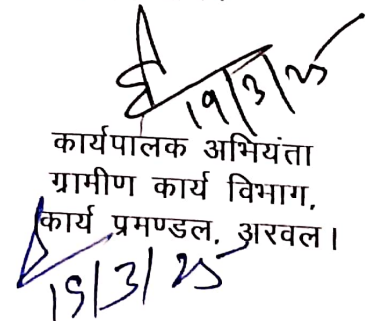 19/3/25
कार्यपालक अभियंता
ग्रामीण कार्य विभाग,
कार्य प्रमण्डल, अरवल।
19/3/25